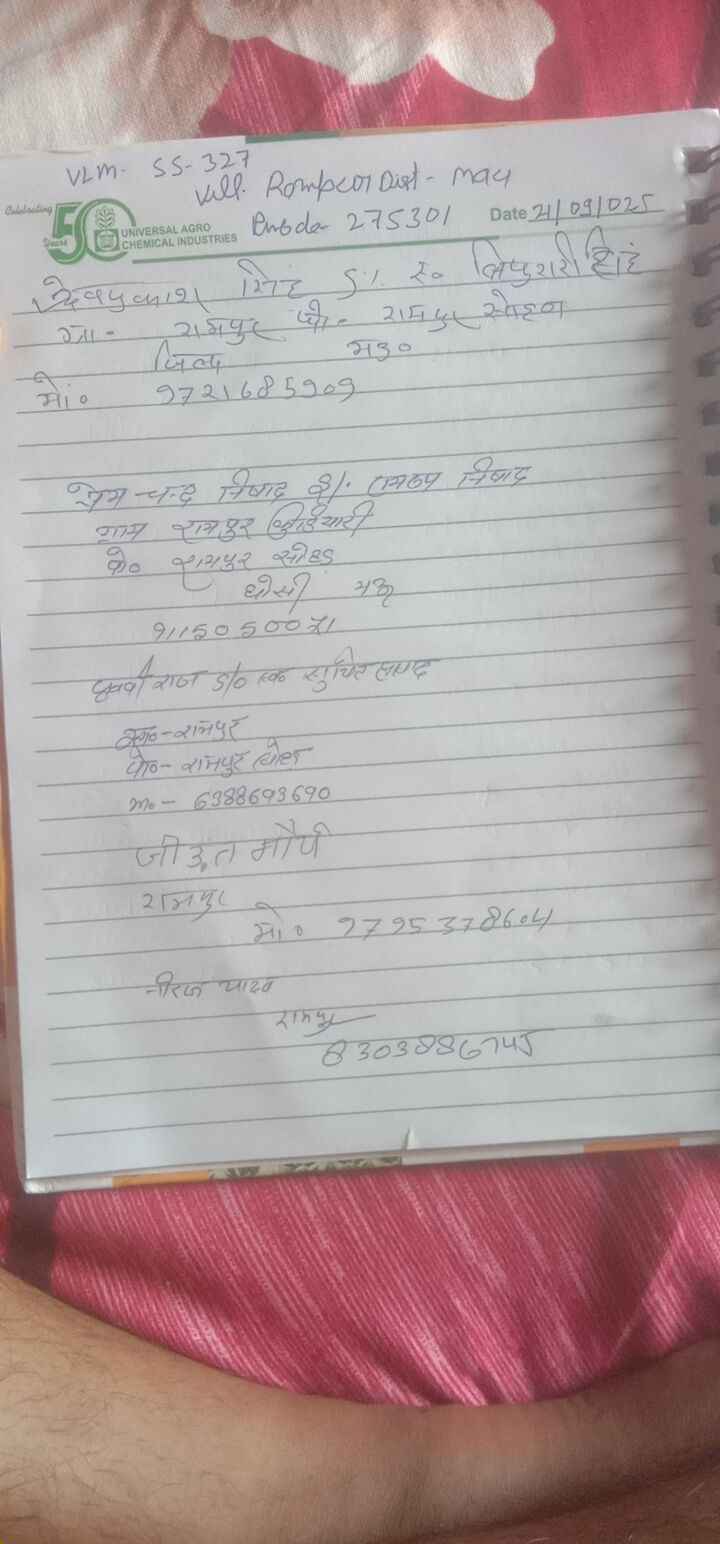 VLM- SS-327
Vill. Rampur Dist- mau
Celebrating
50
Years
UNIVERSAL AGRO
CHEMICAL INDUSTRIES
275301
Date 21/09/025
देवप्रकाश सिंह S/. स्व०
ग्रा- रामपुर पो- रामपुर
जिला मऊ०
मो० 9721685909
प्रेम-चन्द निषाद S/. निषाद
ग्राम रामपुर
पो० रामपुर
घोसी मऊ
9115050071
S/o स्व०
ग्रा०-रामपुर
पो०- रामपुर
mo- 6388693690
जीउत मौर्य
रामपुर
मो० 9795378604
नीरज यादव
रामपुर
8303886745